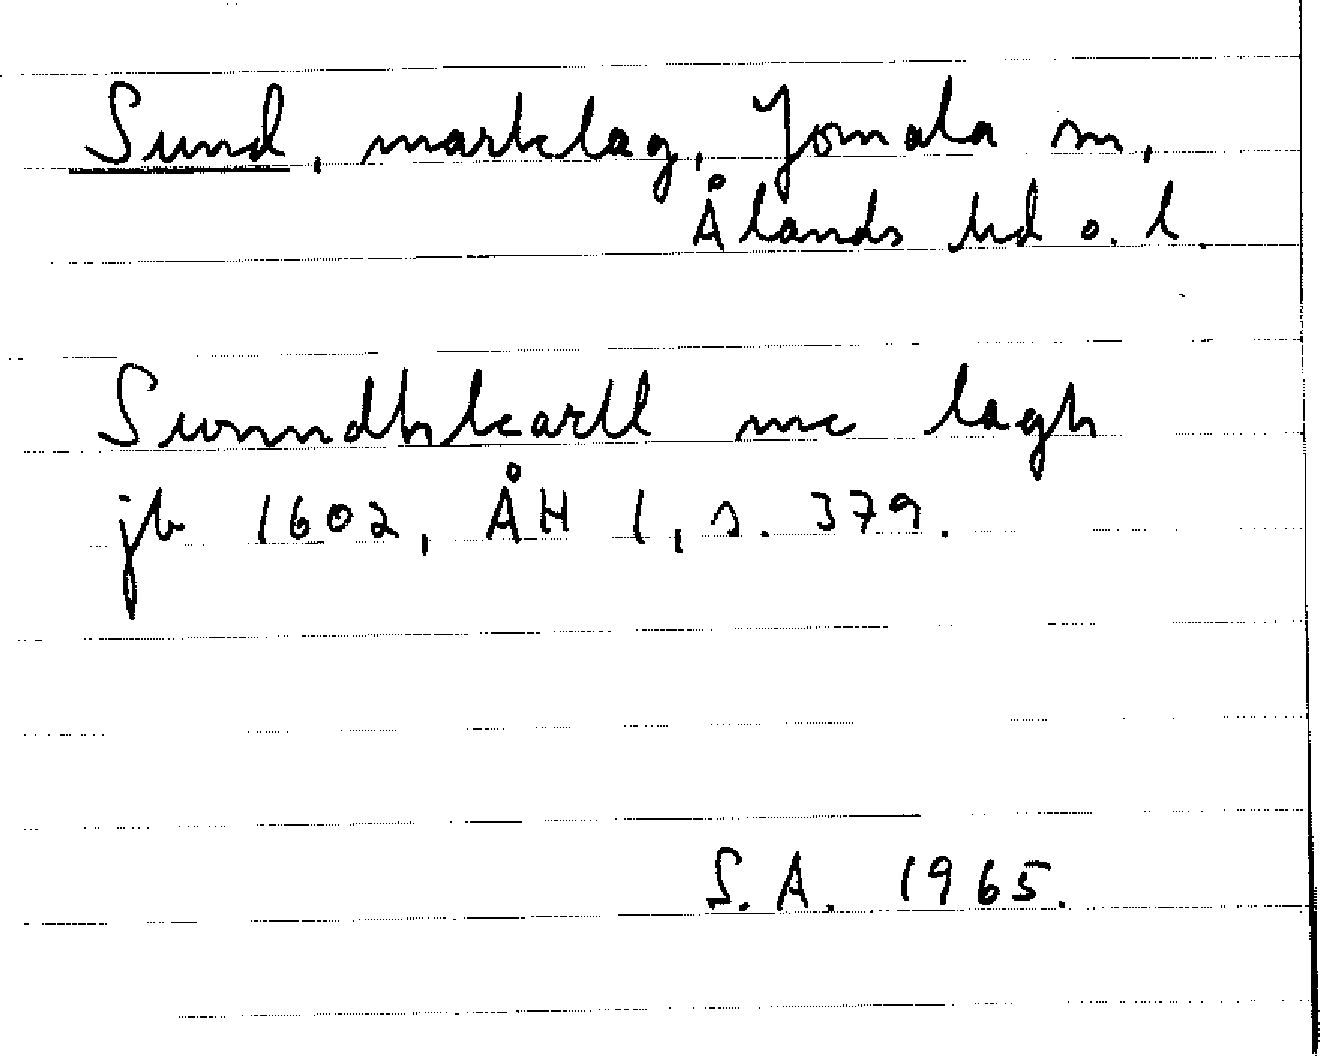 Sund, marklag, Jomala sn,
Ålands hd o. l.
Swnndhzkarll mc lagh
jb 1602, ÅH 1, s. 379.
S.A. 1965.